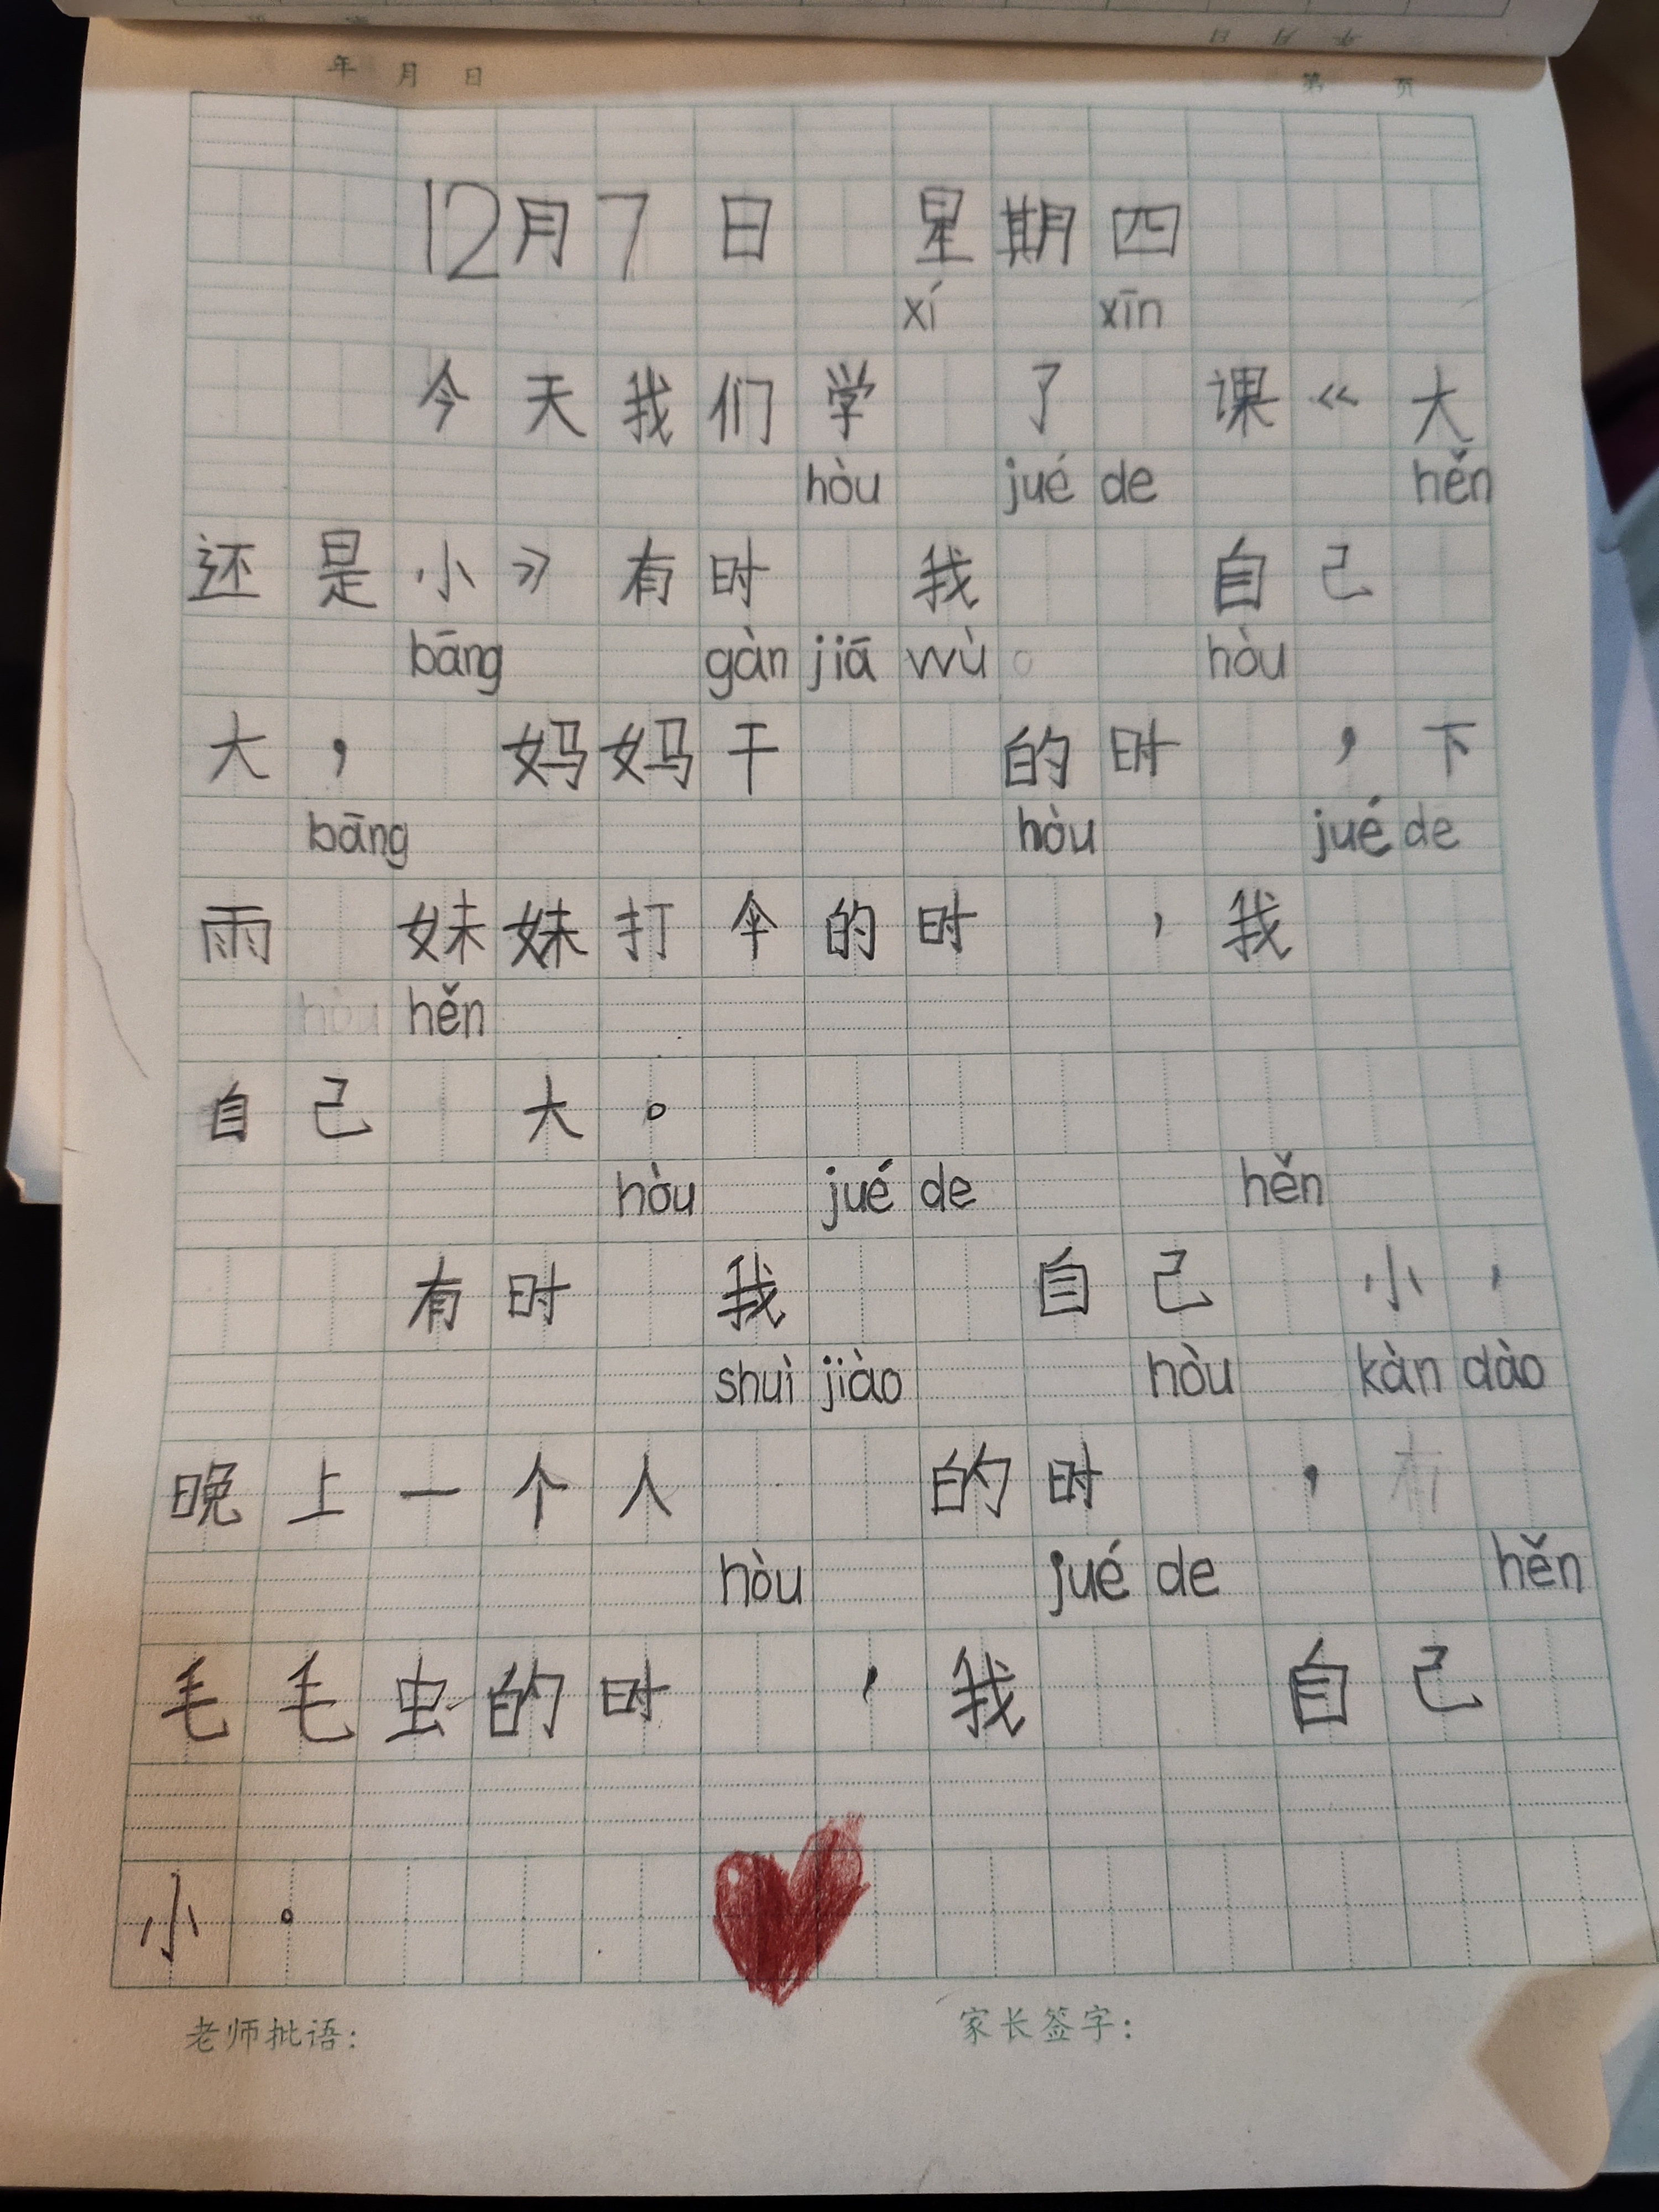 年 月 日 第 页
12月7日 星期四
xí xīn
今天我们学 了 课《大
hòu jué de hěn
还是小》有时 我 自己
bāng gàn jiā wù。 hòu
大, 妈妈干 的时 ,下
bāng hòu jué de
雨 妹妹打伞的时 ,我
hòu hěn
自己 大。
hòu jué de hěn
有时 我 自己 小,
shuì jiào hòu kàn dào
晚上一个人 的时 ,有
hòu jué de hěn
毛毛虫的时 ,我 自己
小。
老师批语: 家长签字: